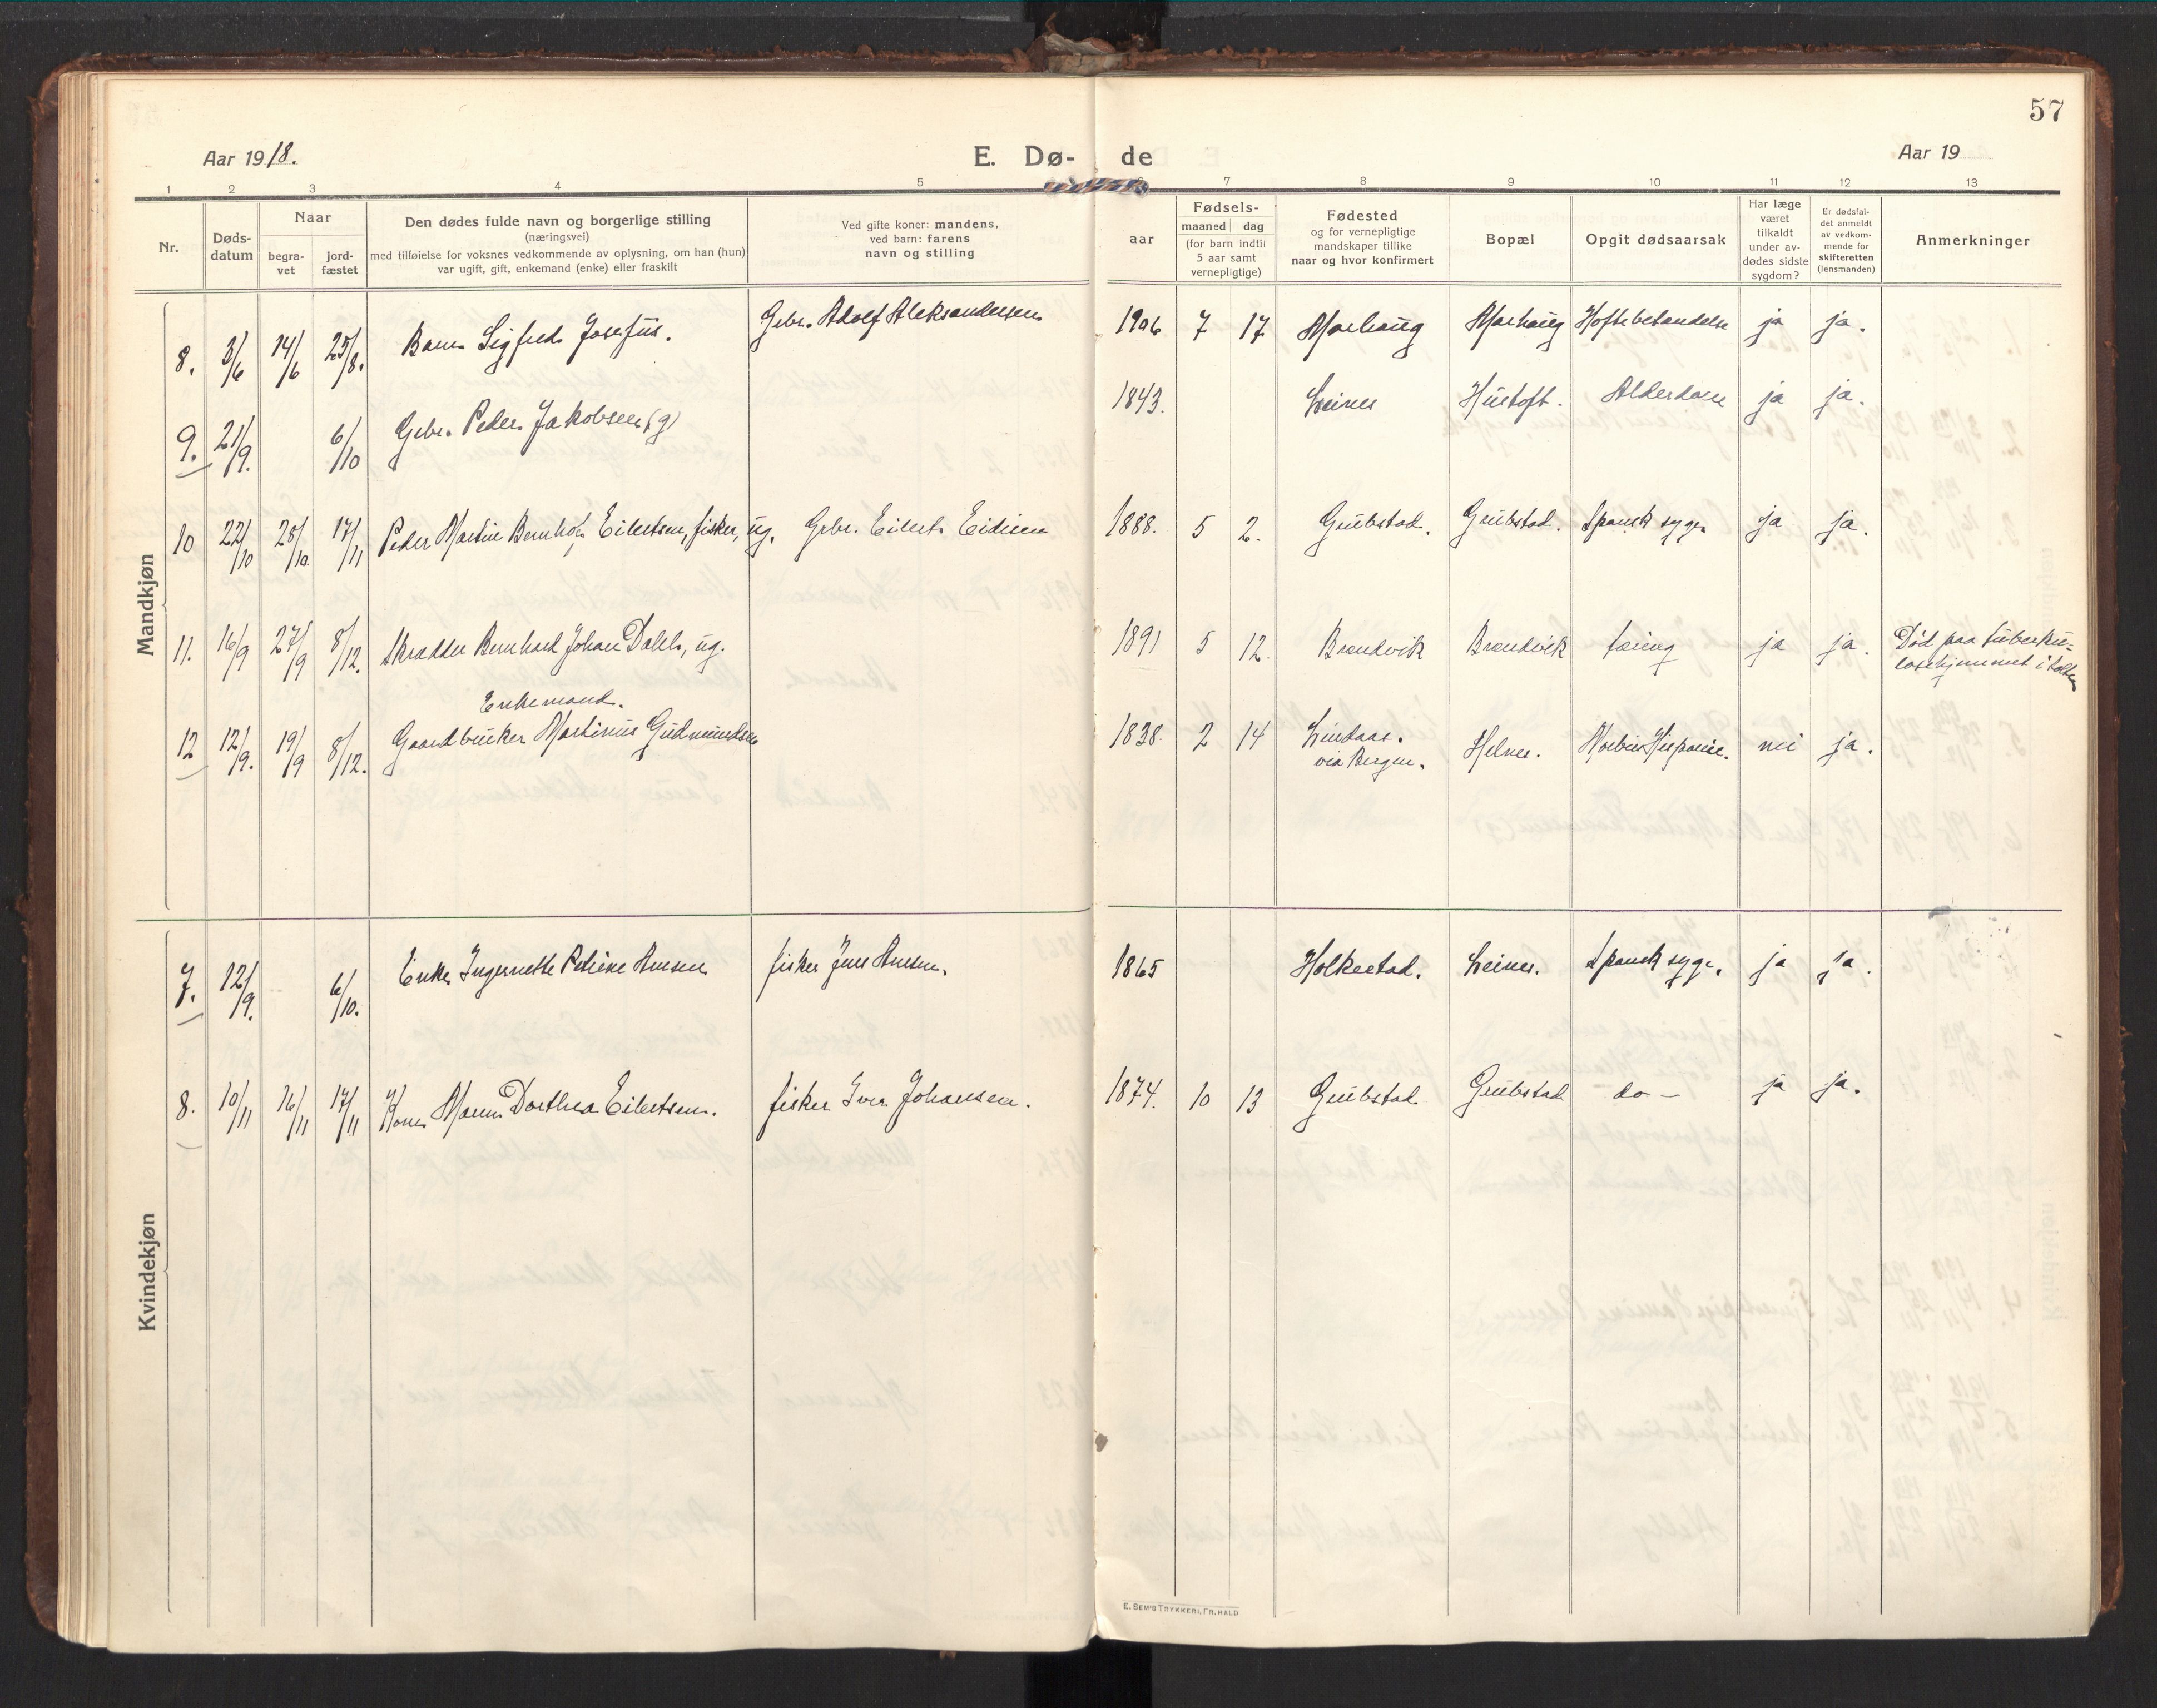 57
Aar 1918.
E. Dø- de
Aar 19
1 2 3 4 5 6 7 8 9 10 11 12 13
Nr.
Døds-
datum
Naar
begra-
vet
jord-
fæstet
Den dødes fulde navn og borgerlige stilling
(næringsvei)
med tilføielse for voksnes vedkommende av oplysning, om han (hun)
var ugift, gift, enkemand (enke) eller fraskilt
Ved gifte koner: mandens,
ved barn: farens
navn og stilling
Fødsels-
aar
maaned dag
(for barn indtil
5 aar samt
vernepligtige)
Fødested
og for vernepligtige
mandskaper tillike
naar og hvor konfirmert
Bopæl
Opgit dødsaarsak
Har læge
været
tilkaldt
under av-
dødes sidste
sygdom?
Er dødsfal-
det anmeldt
av vedkom-
mende for
skifteretten
(lensmanden)
Anmerkninger
Mandkjøn
8. 3/6 14/6 25/8. Barn Sigfred Josefus. Gbr. Adolf Aleksandersen 1906 7 17 Marhaug Marhaug Hoftebetændelse ja ja.
9. 21/9. 6/10 Gbr. Peder Jakobsen (g) 1843. Leines Hustoft. Alderdom ja ja.
10 22/10 28/10 17/11 Peder Martin Bernhof Eilertsen, fisker, ug. Gbr. Eilert Eidisen 1888. 5 2. Grubstad. Grubstad. Spansk syge ja ja.
11. 16/9 27/9 8/12. Skrædder Bernhard Johan Dahl, ug. 1891 5 12. Brændvik Brændvik tæring ja ja. Død paa tuberku-
losehjemmet i
Enkemand.
12 12/9. 19/9 8/12. Gaardbruker Martinus Gudmundsen 1838. 2 14 Lindaas. Helnes. nei ja.
via Bergen.
Kvindekjøn
7. 12/9. 6/10. Enke Ingernette Petrine Amsen fisker Jens Amsen. 1865 Holkestad. Leines. Spansk syge. ja ja.
8. 10/11 16/11 17/11 g/ Kone Maren Dorthea Eilertsen. fisker Iver Johansen. 1874. 10 13 Grubstad Grubstad do - ja ja.
E. SEM'S TRYKKERI, FR.HALD